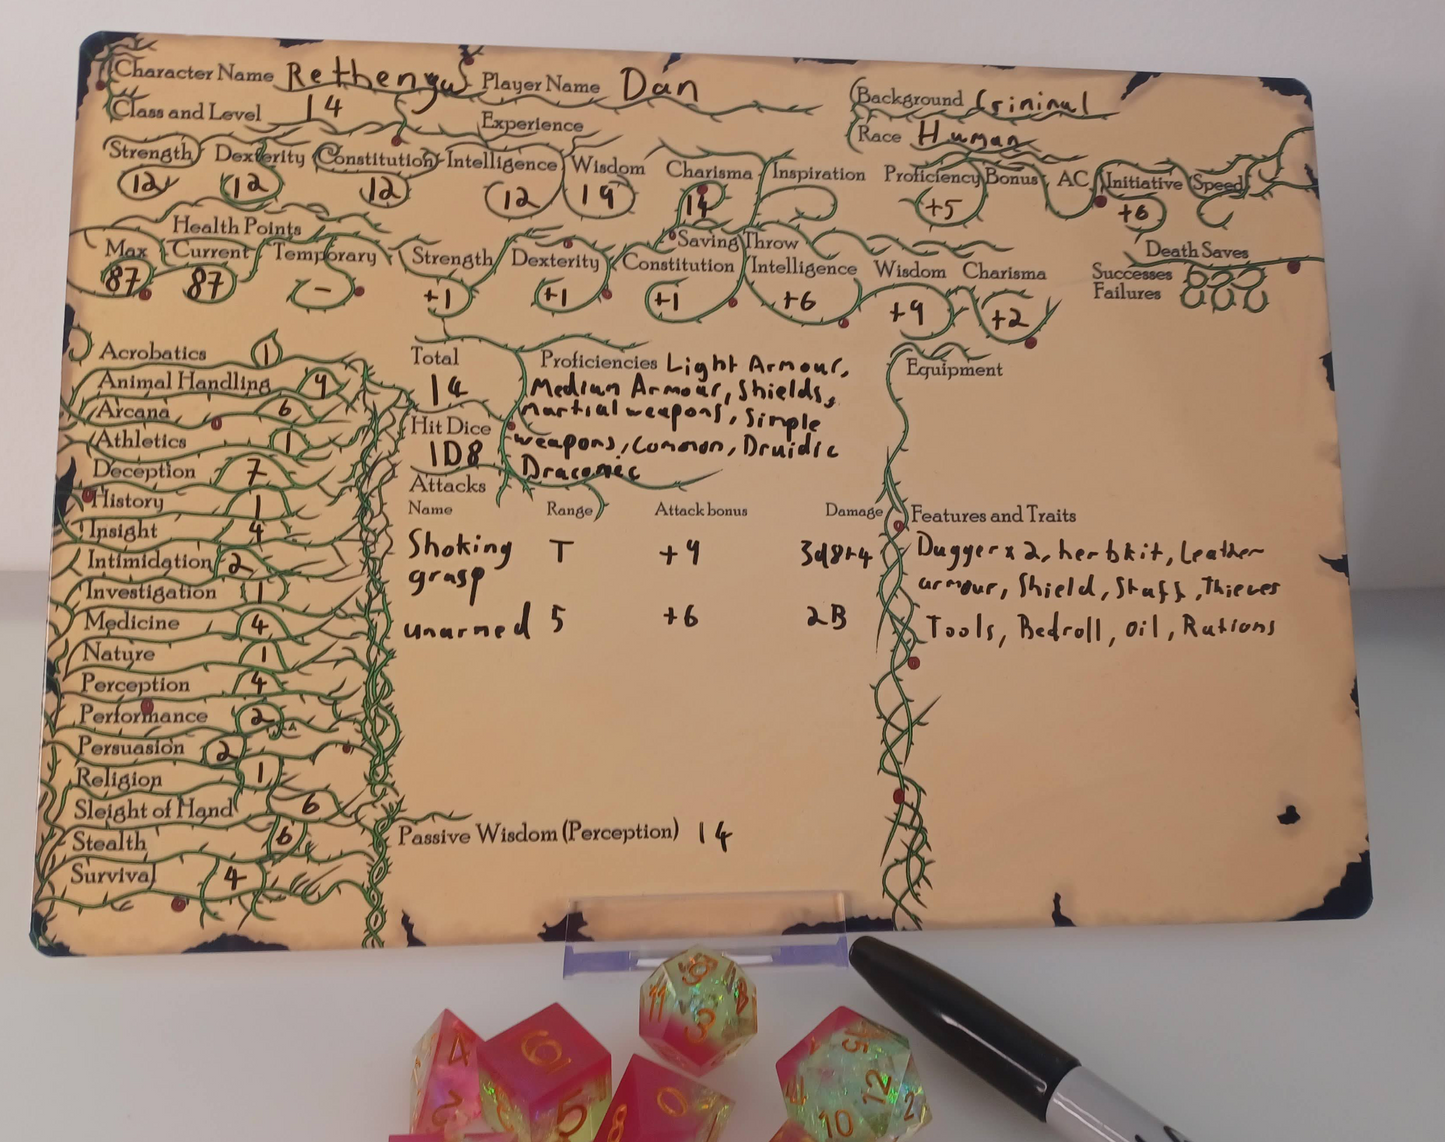 Character Name Rethengul Player Name Dan
Background Criminal
Class and Level 14 Experience
Race Human
Strength Dexterity Constitution Intelligence Wisdom Charisma Inspiration Proficiency Bonus AC Initiative Speed
12 12 12 12 19 14 +5 +6
Health Points
Max Current Temporary
87 87 -
Saving Throw
Strength Dexterity Constitution Intelligence Wisdom Charisma
+1 +1 +1 +6 +9 +2
Death Saves
Successes
Failures
Acrobatics 1
Animal Handling 9
Arcana 6
Athletics 1
Deception 7
History 1
Insight 4
Intimidation 2
Investigation 1
Medicine 4
Nature 1
Perception 4
Performance 2
Persuasion 2
Religion 1
Sleight of Hand 6
Stealth 6
Survival 4
Total
14
Hit Dice
1D8
Proficiencies Light Armour,
Medium Armour, Shields,
martial weapons, Simple
weapons, Common, Druidic
Draconec
Equipment
Attacks
Name Range Attack bonus Damage
Shoking T +9 3d8+4
grasp
unarmed 5 +6 2B
Features and Traits
Dugger x 2, herbkit, Leather
armour, Shield, Staff, Thieves
Tools, Bedroll, oil, Rations
Passive Wisdom (Perception) 14
4
6
5
0
11
3
15
12
10
2